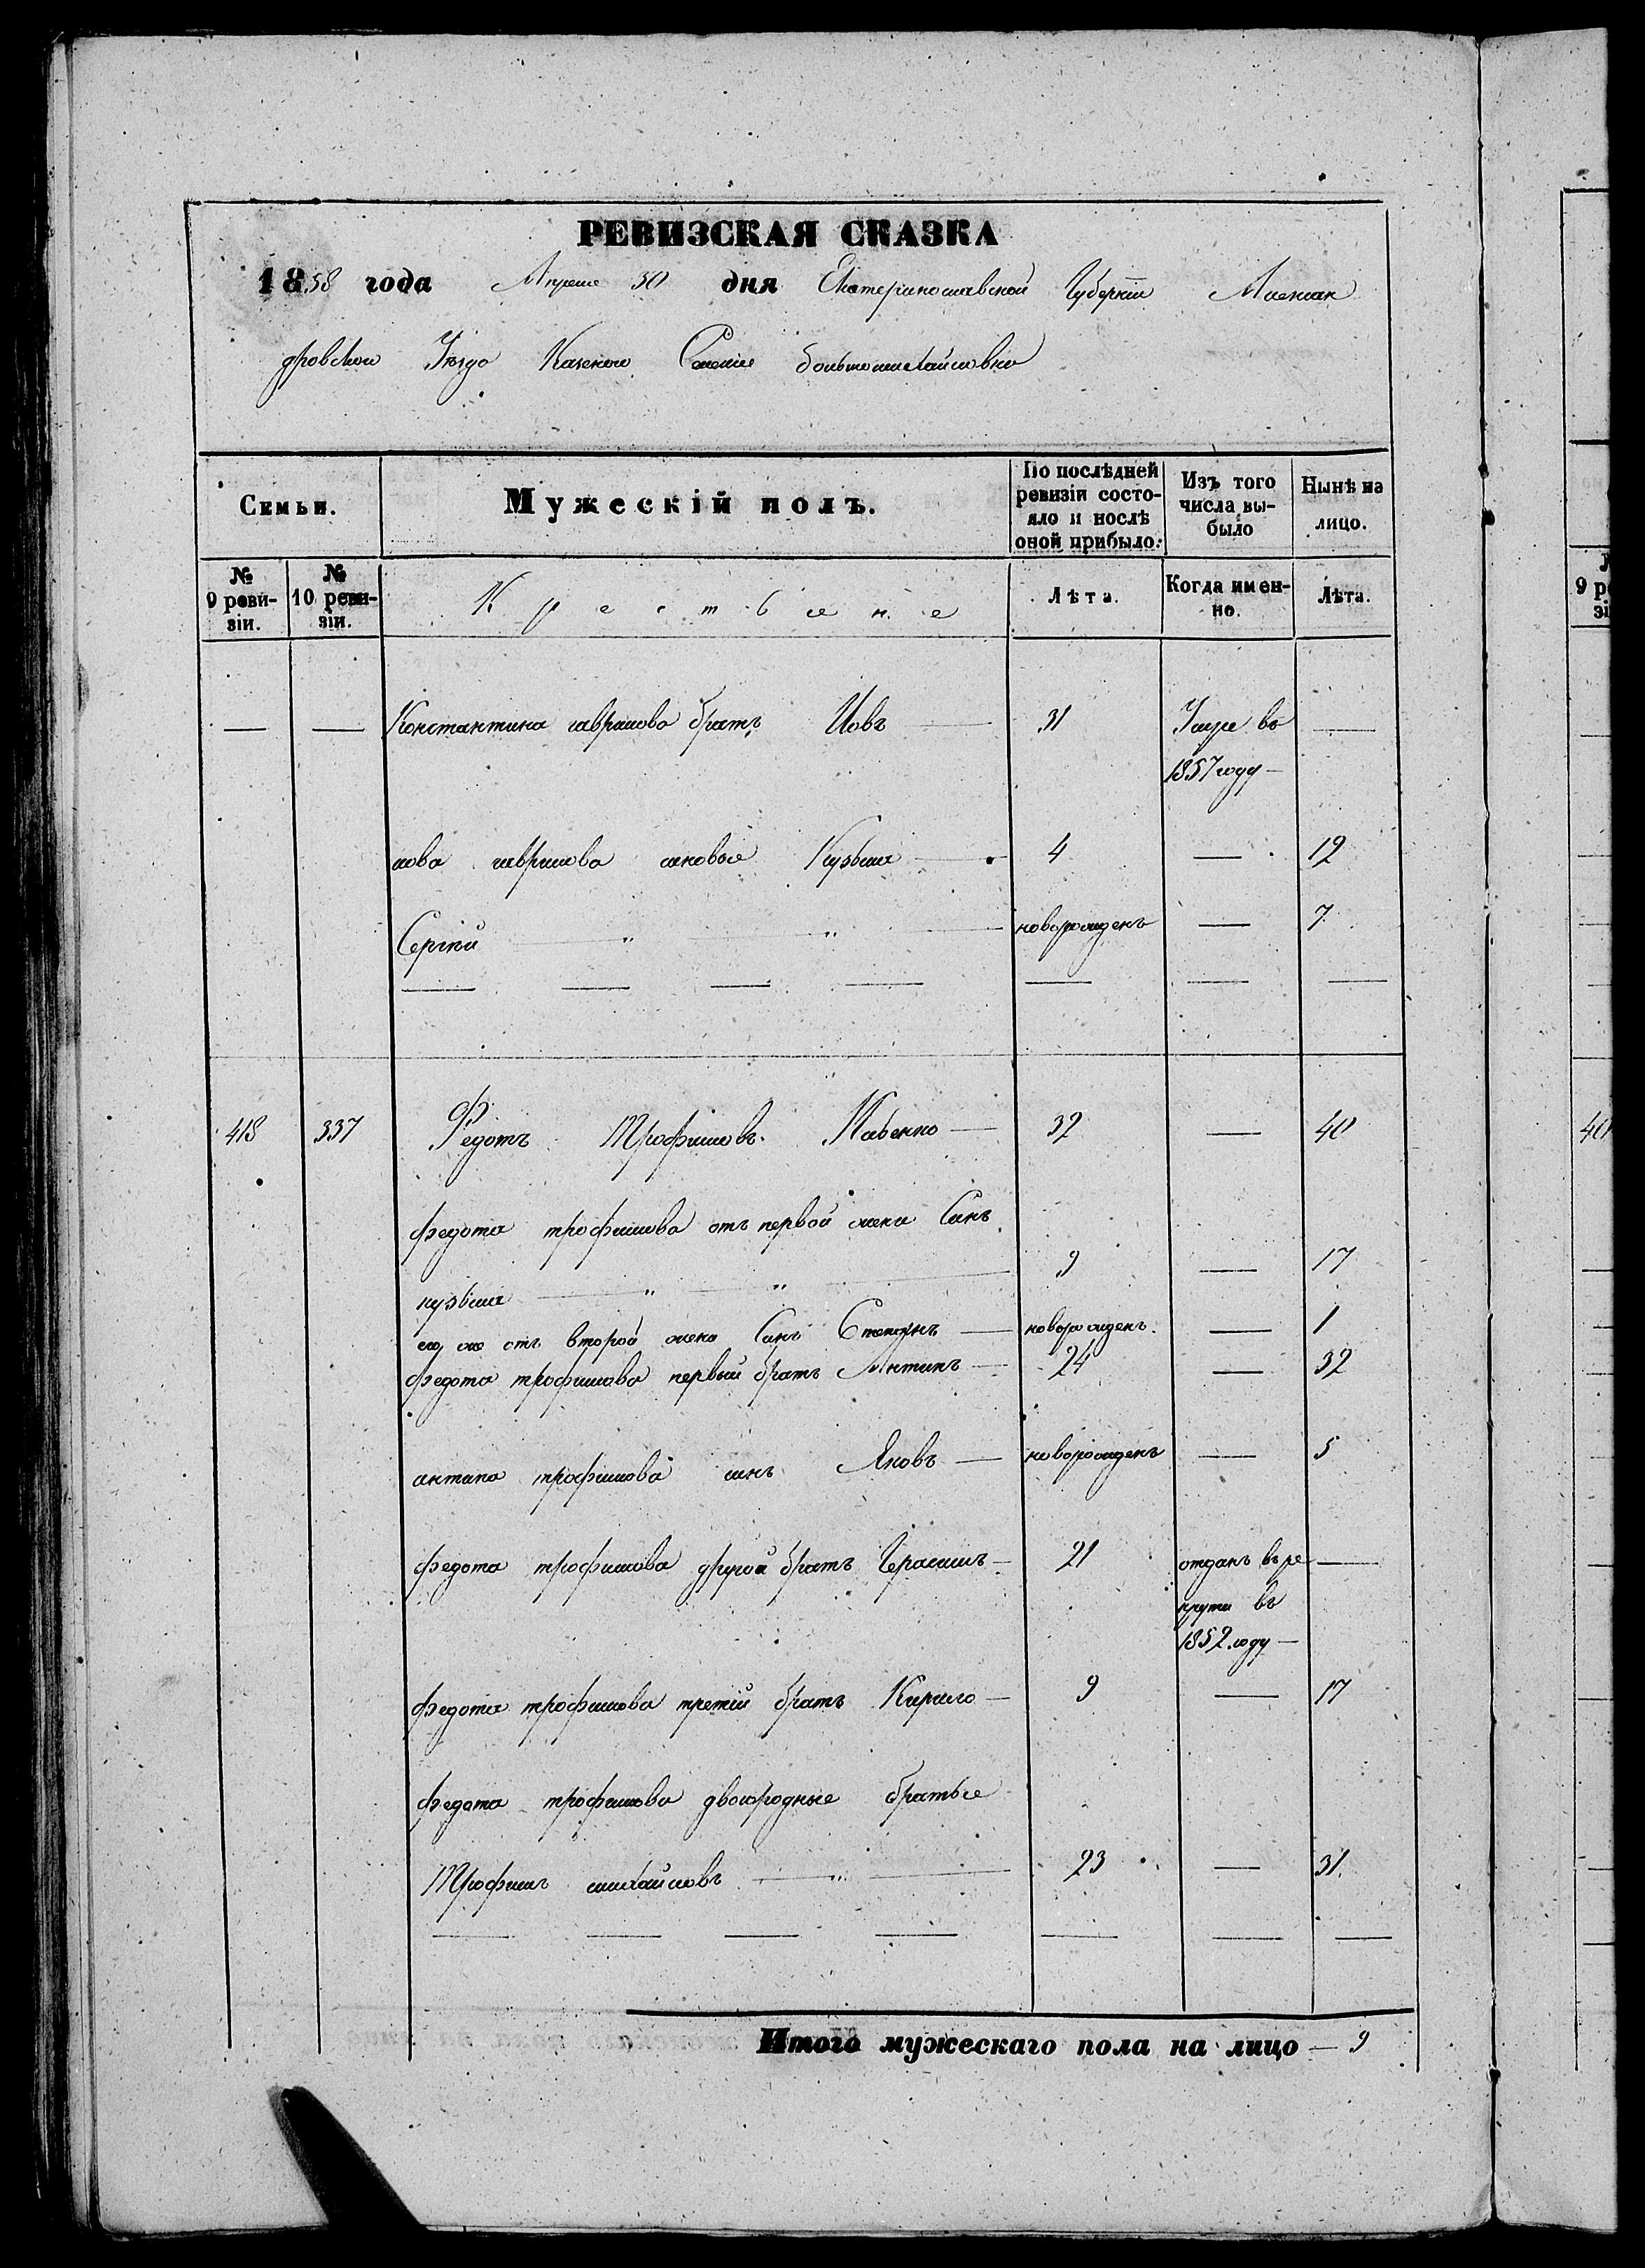 РЕВИЗСКАЯ СКАЗКА
1858 года Апреля 30 дня Екатеринославской Губернии Алексан
дровского Уезда Казенного Селения большемихайловки
Семьи.
Мужескій полъ.
По послѣдней ревизіи состо-
яло и послѣ
оной прибыло.
Изъ того
числа вы-
было
Нынѣ на
лицо.
№
9 реви-
зіи.
№
10 реви-
зіи.
Крестьяне
Лѣта.
Когда имен-
но.
Лѣта.
— — Константина гаврилова братъ Иовъ — 31 Умре въ —
1857 году —
иова гаврилова сыновье Кузьма — 4 — 12
Сергій — " — " — новорожденъ — 7
418 337 Федотъ Трофимовъ — 32 — 40
федота трофимова отъ первой жены Сынъ
кузьма — " — " — 9 — 17
его же отъ второй жены Сынъ Степанъ — новорожденъ. — 1
федота трофимова первый братъ Антипъ — 24 — 32
антипа трофимова сынъ Яковъ — новорожденъ — 5
федота трофимова другой братъ Герасимъ — 21 отданъ въ ре —
круты въ
1852 году —
федота трофимова третій братъ Кирило — 9 — 17
федота трофимова двоюродные братье
Трофимъ михайловъ — " — 23 — 31.
Итого мужескаго пола на лицо — 9
№
9 ре
зі
40